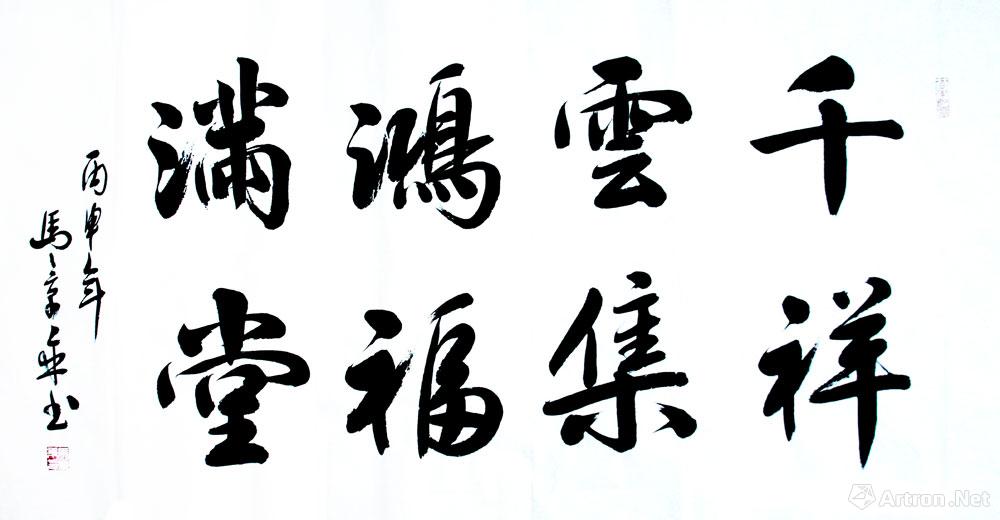 千祥
雲集
鴻福
滿堂
丙申年
馬章乘书
Artron.Net